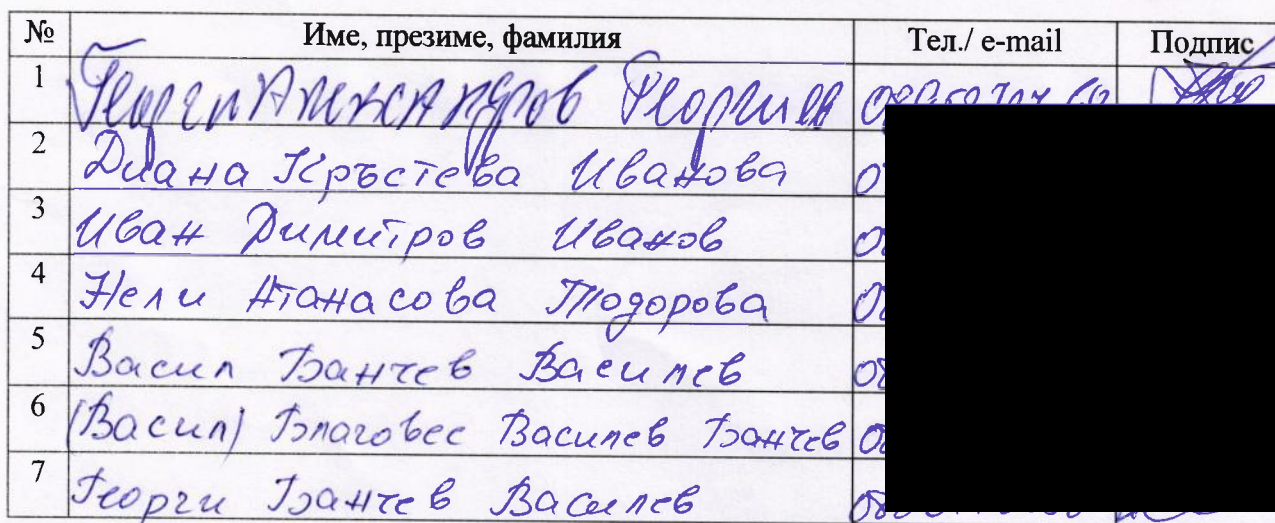 № Име, презиме, фамилия Тел./ e-mail Подпис
1 Георги Александров Георгиев
2 Диана Кръстева Иванова
3 Иван Димитров Иванов
4 Нели Атанасова Тодорова
5 Васил Банчев Василев
6 (Васил) Благовес Василев Банчев
7 Георги Банчев Василев